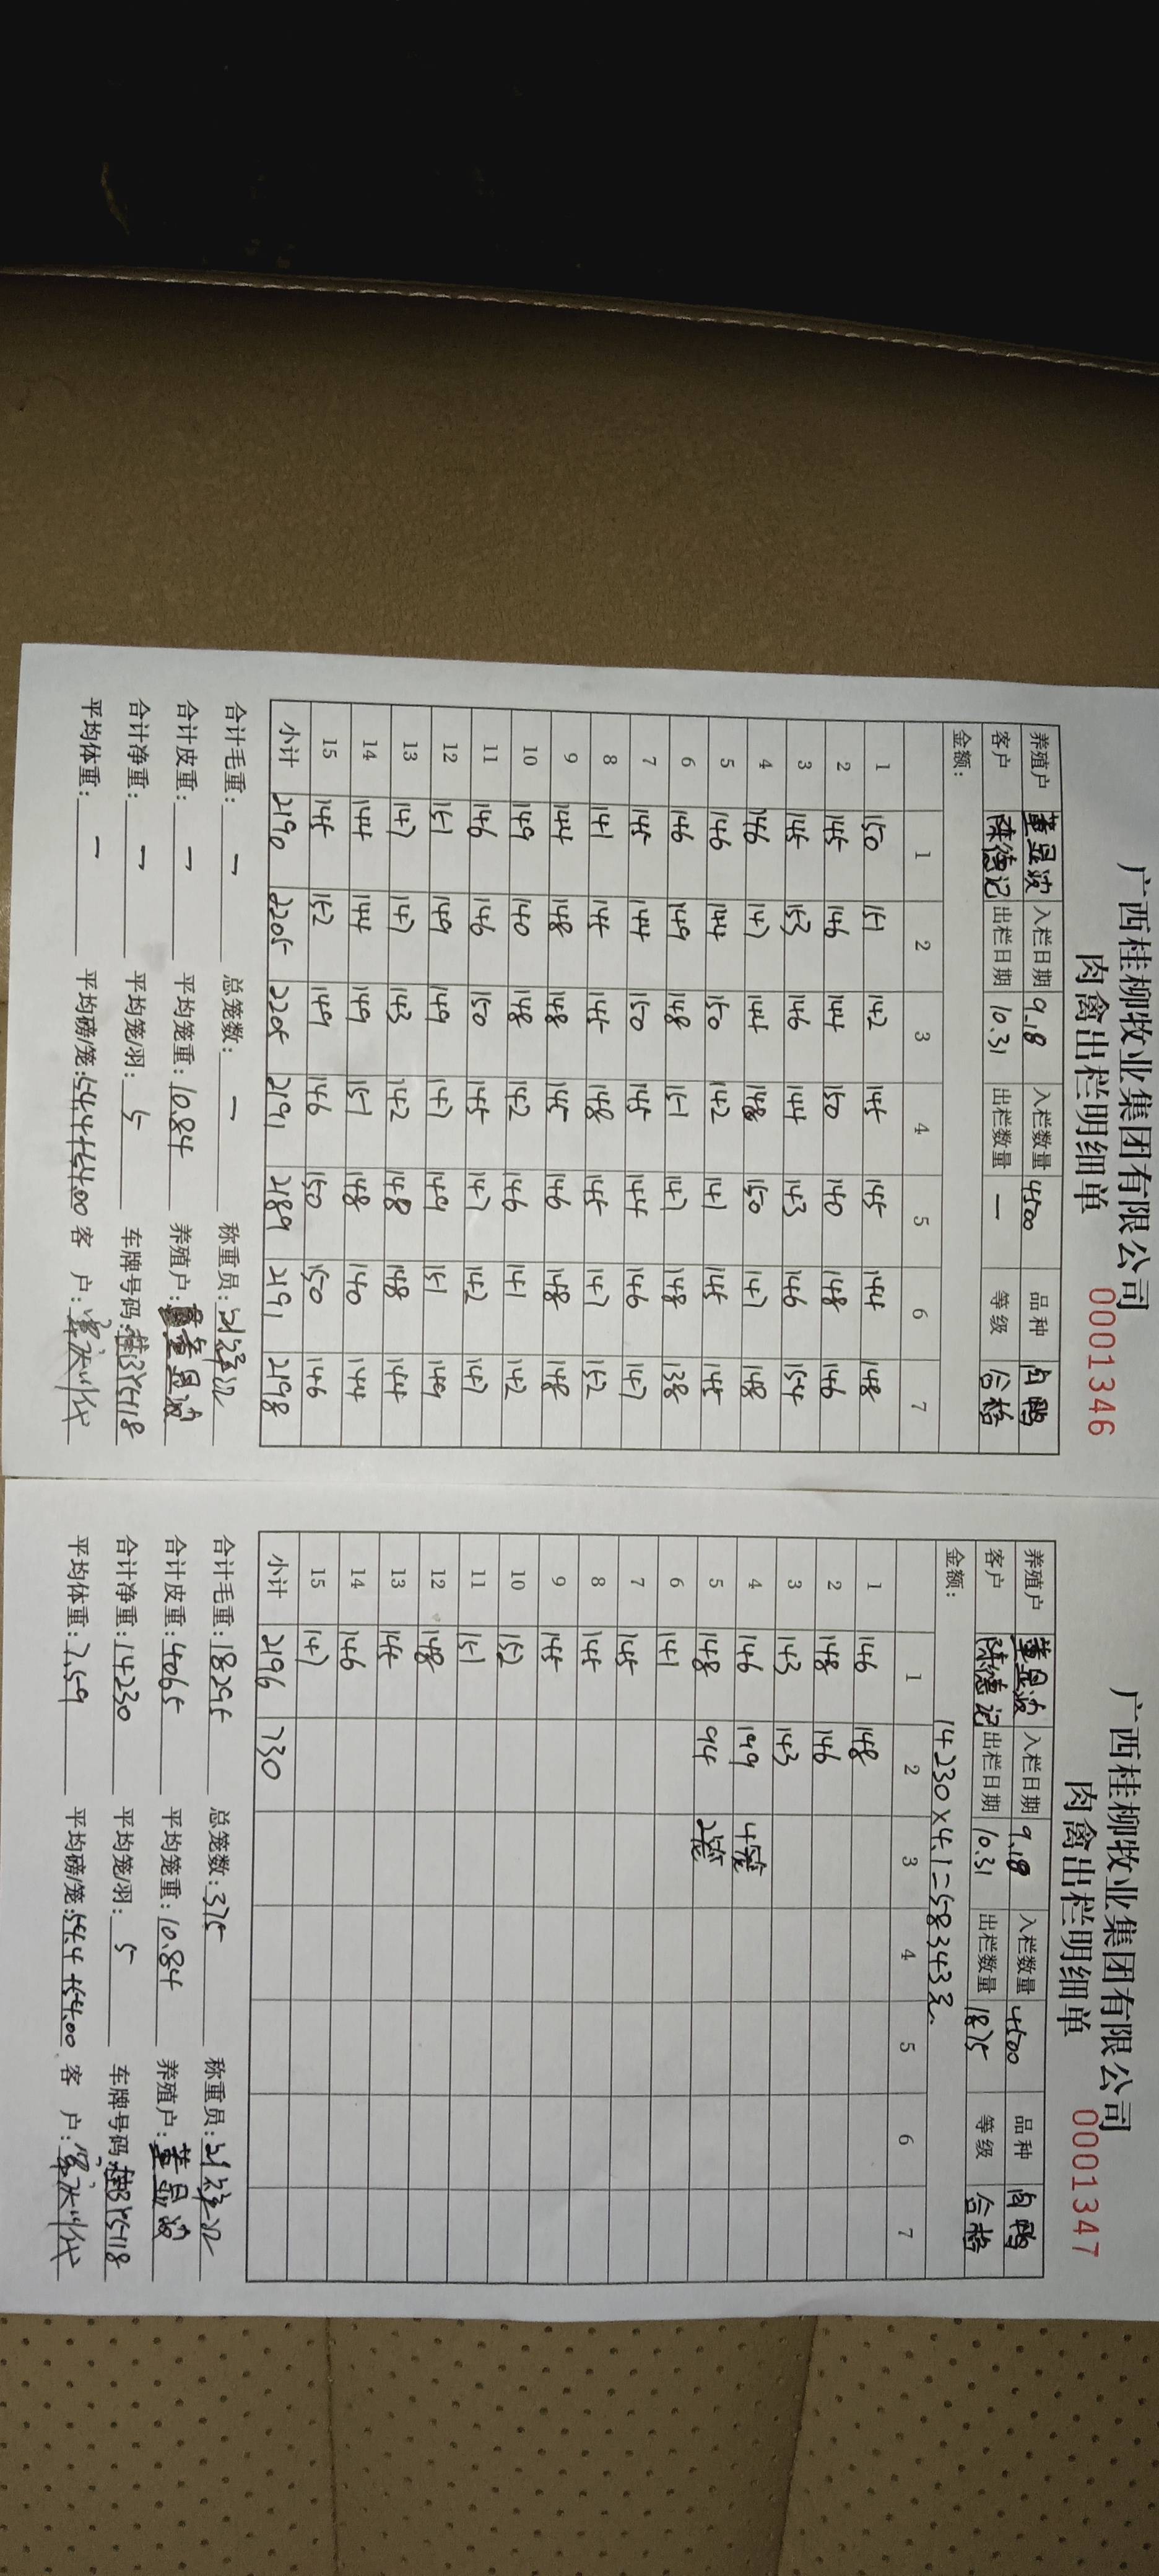 广西桂柳牧业集团有限公司
肉禽出栏明细单 0001346
养殖户 董显波 入栏日期 9.18 入栏数量 4500 品种 肉鸭
客户 陈德记 出栏日期 10.31 出栏数量 — 等级 合格
金额：
1 2 3 4 5 6 7
1 150 151 142 145 145 144 148
2 145 146 144 150 140 148 146
3 145 153 146 144 143 146 154
4 146 147 145 148 150 147 148
5 146 144 150 142 141 145 145
6 146 149 148 151 147 148 138
7 145 144 150 145 144 146 147
8 141 145 144 148 145 147 152
9 144 148 148 145 146 148 148
10 149 140 148 142 146 141 142
11 146 146 150 145 147 142 147
12 151 149 149 147 149 151 149
13 147 147 143 142 148 148 144
14 144 144 149 151 148 140 144
15 145 152 149 146 150 150 146
小计 2190 2205 2205 2191 2189 2191 2198
合计毛重：— 总笼数：— 称重员：
合计皮重：— 平均笼重：10.84 养殖户：董显波
合计净重：— 平均笼/羽：5 车牌号码：桂
平均体重：— 平均磅/笼：54.4 客 户：
广西桂柳牧业集团有限公司
肉禽出栏明细单 0001347
养殖户 董显波 入栏日期 9.18 入栏数量 4500 品种 肉鸭
客户 陈德记 出栏日期 10.31 出栏数量 1875 等级 合格
金额：14230×4.1=58343元.
1 2 3 4 5 6 7
1 146 148
2 148 146
3 143 143
4 146 199 4笼
5 148 94 2笼
6 141
7 145
8 145
9 145
10 152
11 151
12 148
13 145
14 146
15 147
小计 2196 730
合计毛重：18295 总笼数：375 称重员：
合计皮重：4065 平均笼重：10.84 养殖户：董显波
合计净重：14230 平均笼/羽：5 车牌号码：桂
平均体重：7.59 平均磅/笼：54.4 客 户：